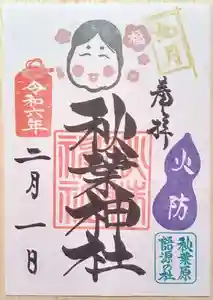 如月
福
奉拝
秋葉神社
火防
秋葉原
語源の社
令和六年
二月一日